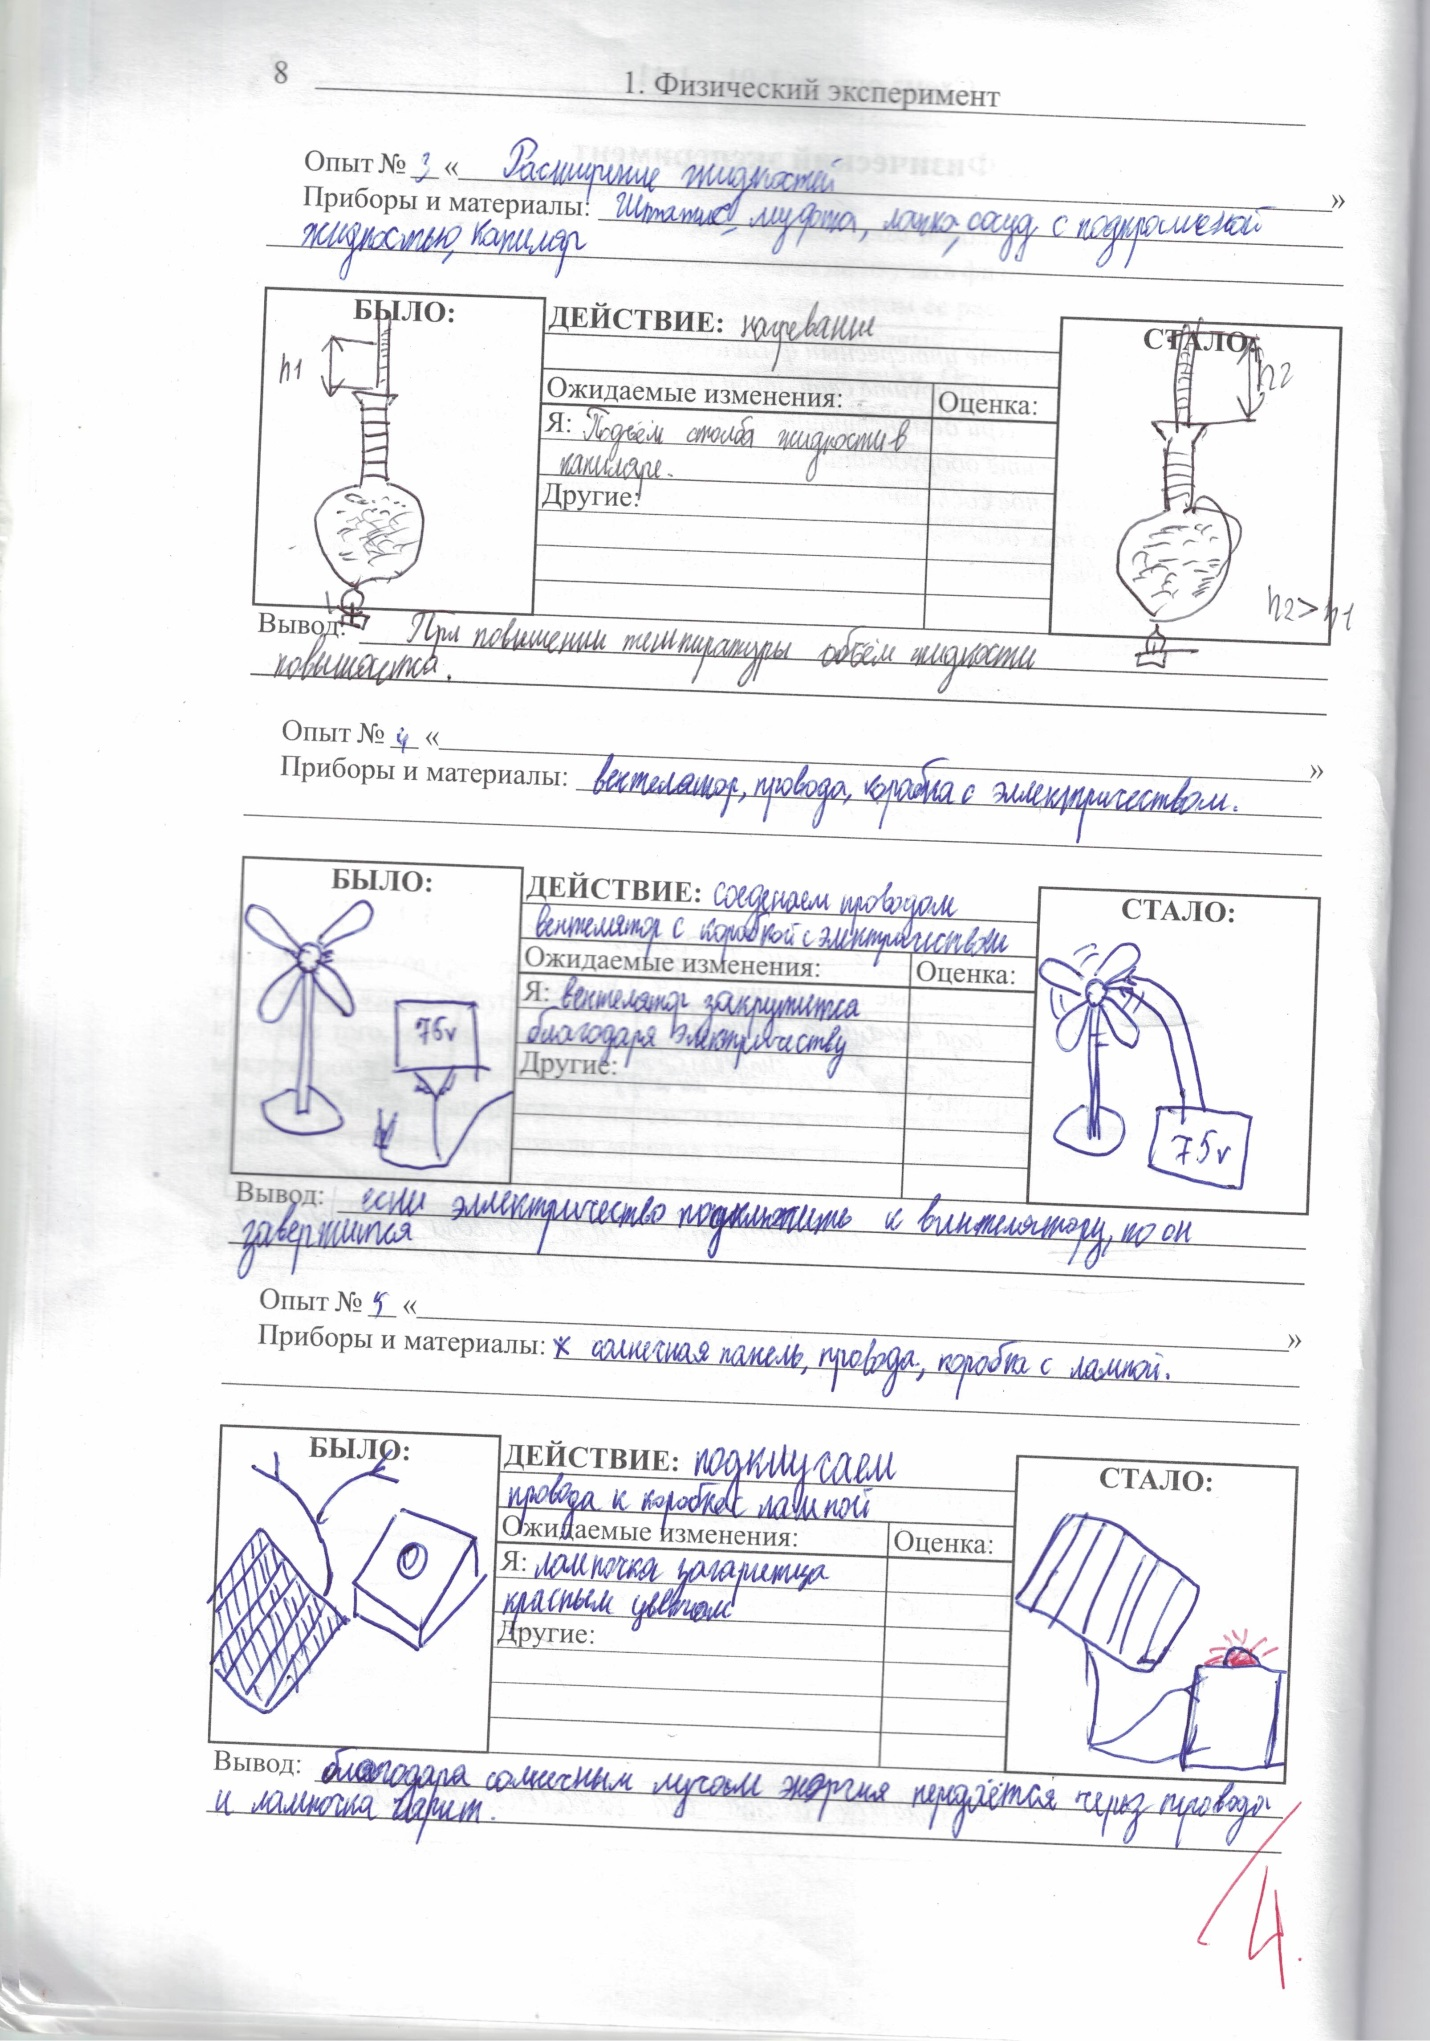 8
1. Физический эксперимент
Опыт № 3 « Расширение жидкостей »
Приборы и материалы: Штатив муфта, лапка, сосуд с подкрашеной
жидкостью, капиляр
БЫЛО:
h1
ДЕЙСТВИЕ: нагревание
Ожидаемые изменения: Оценка:
Я: Подъём столба жидкости в
капиляре.
Другие:
СТАЛО:
h2
h2>h1
Вывод: При повышении температуры объём жидкости
повышается.
Опыт № 4 « »
Приборы и материалы: вентелятор, провода, коробка с эллектричеством.
БЫЛО:
75v
ДЕЙСТВИЕ: соеденаем проводом
вентелятор с коробкой с элктричеством
Ожидаемые изменения: Оценка:
Я: вентелятор закрутитса
благодаря электричеству
Другие:
СТАЛО:
75v
Вывод: если эллектричество подключить к винтелятору, то он
завертится
Опыт № 5 « »
Приборы и материалы: солнечная панель, провода, коробка с лампой.
БЫЛО:
ДЕЙСТВИЕ: подключаем
провода к коробке с лампой
Ожидаемые изменения: Оценка:
Я: лампочка загаритца
красным цветом
Другие:
СТАЛО:
Вывод: благодара солнечным лучам энергия передаётся через провода
и лампочка гарит.
4.